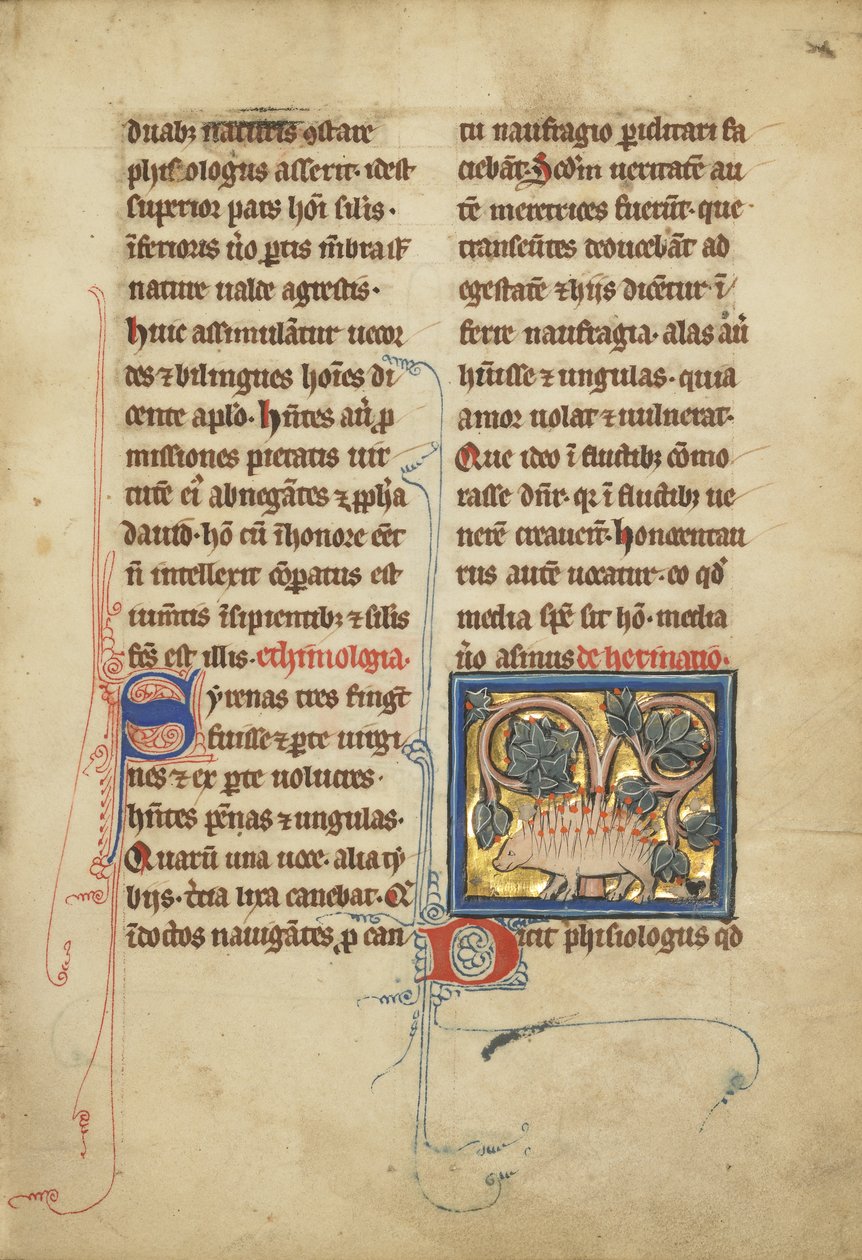 duabꝫ naturis ꝯstare
phisologus asserit· idest
superior pars hōi silis·
īferioris ū̓o ꝑtis m̄bra st̄
nature ualde agrestis·
huic assimulātur uecor
des ⁊ bilingues hoīes di
cente apl̓o· hn̄tes aū̓ ꝓ
missiones pietatis uir
tutē ei̓ abnegātes ⁊ ꝓph̓a
dauid· hō cū ī honore eēt
n̄ intellexit cōꝑatus est
iumētis īsipientibꝫ ⁊ silis
fc̄s est illis· ethimologia·
Syrenas tres fingūt
fuisse ⁊ ꝑte uirgi
nes ⁊ ex ꝑte uolucres·
hn̄tes pēnas ⁊ ungulas·
Quarū una uoce· alia ty
bijs· t̓cia lira canebat· Q̄
īdoctos nauigātes ꝑ can
tu naufragio ꝑiclitari fa
ciebāt· Scd̓m ueritatē au
tē meretrices fuerūt· que
transeūtes deducebāt ad
egestatē ⁊ hijs dicētur ī
ferre naufragia· alas aū̓
hūisse ⁊ ungulas· quia
amor uolat ⁊ uulnerat·
Que ideo ī fluctibꝫ cōmo
rasse dn̄r· qr̄ ī fluctibꝫ ue
nerē creauerūt· honocentau
rus autē uocatur· eo qd̓
media spē sit hō· media
ū̓o asinus de herinatio·
Dicit phisiologus qd̓